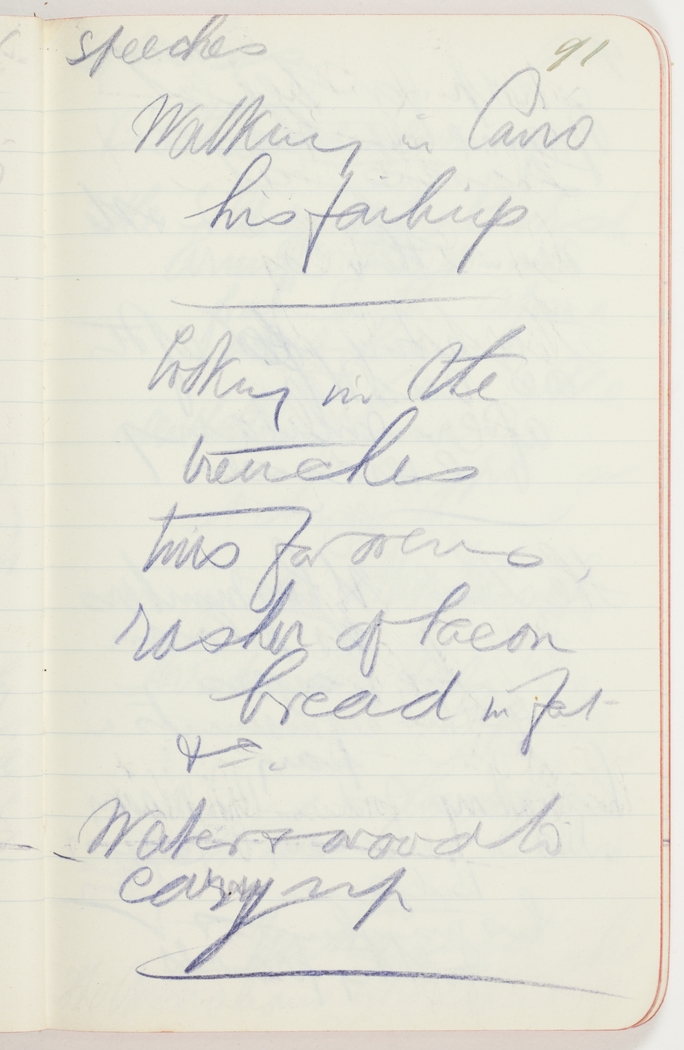 speeches
91
Walking in Cairo
his failings
Cooking in the
trenches
tins for ovens,
rasher of bacon
bread in fat
&c.
Water & wood to
carry up